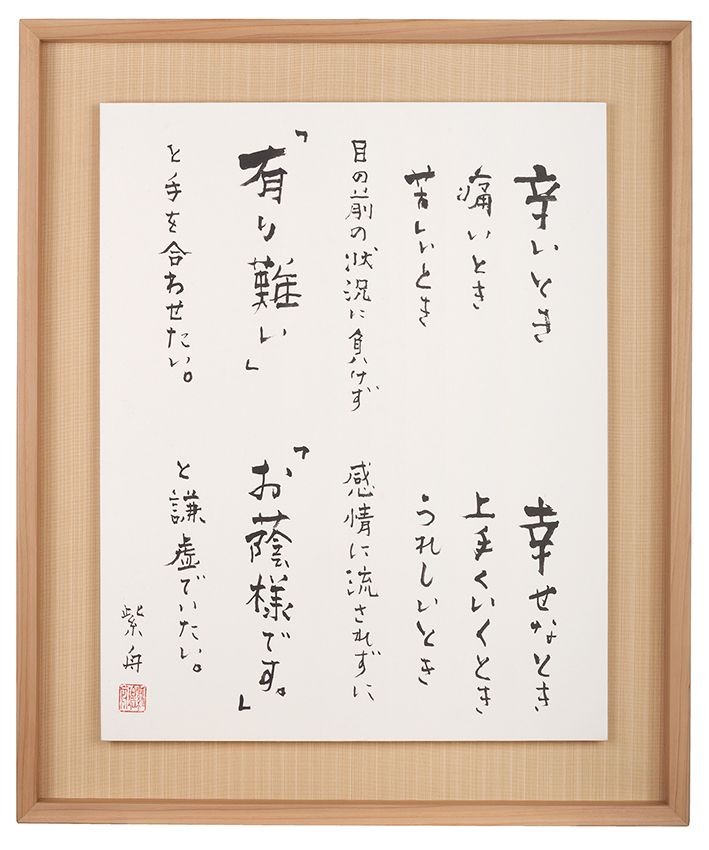 辛いとき
痛いとき
苦しいとき
目の前の状況に負けず
「有り難い」
と手を合わせたい。
幸せなとき
上手くいくとき
うれしいとき
感情に流されずに
「お蔭様です。」
と謙虚でいたい。
紫舟